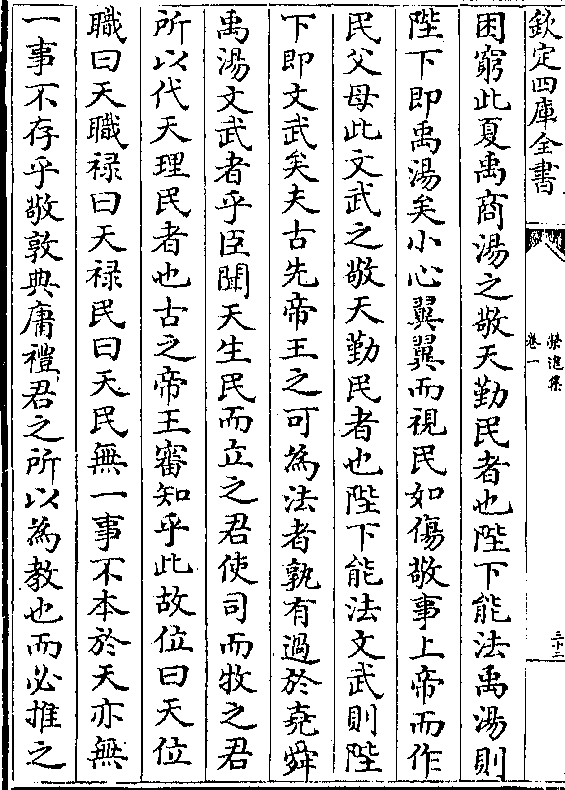 欽定四庫全書
榮進集
卷一
三十二
困窮此夏禹商湯之敬天勤民者也陛下能法禹湯則
陛下即禹湯矣小心翼翼而視民如傷敬事上帝而作
民父母此文武之敬天勤民者也陛下能法文武則陛
下即文武矣夫古先帝王之可為法者孰有過於堯舜
禹湯文武者乎臣聞天生民而立之君使司而牧之君
所以代天理民者也古之帝王審知乎此故位曰天位
職曰天職禄曰天禄民曰天民無一事不本於天亦無
一事不存乎敬敦典庸禮君之所以為教也而必推之